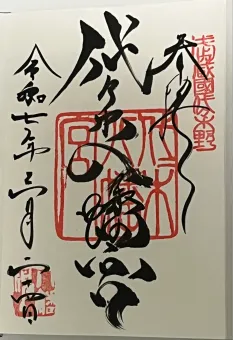 武蔵國代々木野
奉拝
代々木八幡宮
代々木八幡宮
令和七年 月二十四日